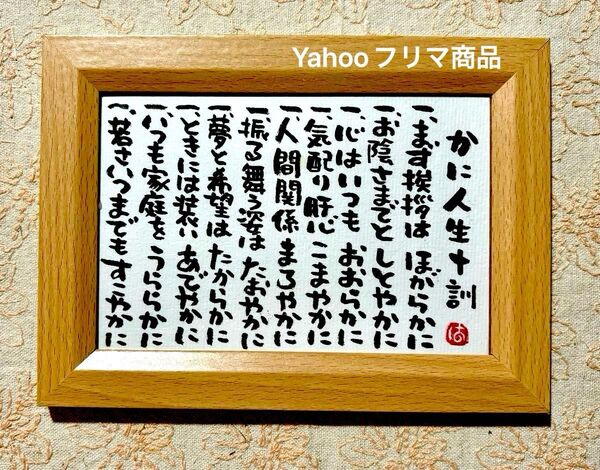 Yahooフリマ商品
かに人生十訓
一、まず挨拶は ほがらかに
一、お陰さまでと しとやかに
一、心はいつも おおらかに
一、気配り肝心 こまやかに
一、人間関係 まろやかに
一、振る舞う姿は たおやかに
一、夢と希望は たからかに
一、ときには装い あでやかに
一、いつも家庭を うららかに
一、若さいつまでも すこやかに
は